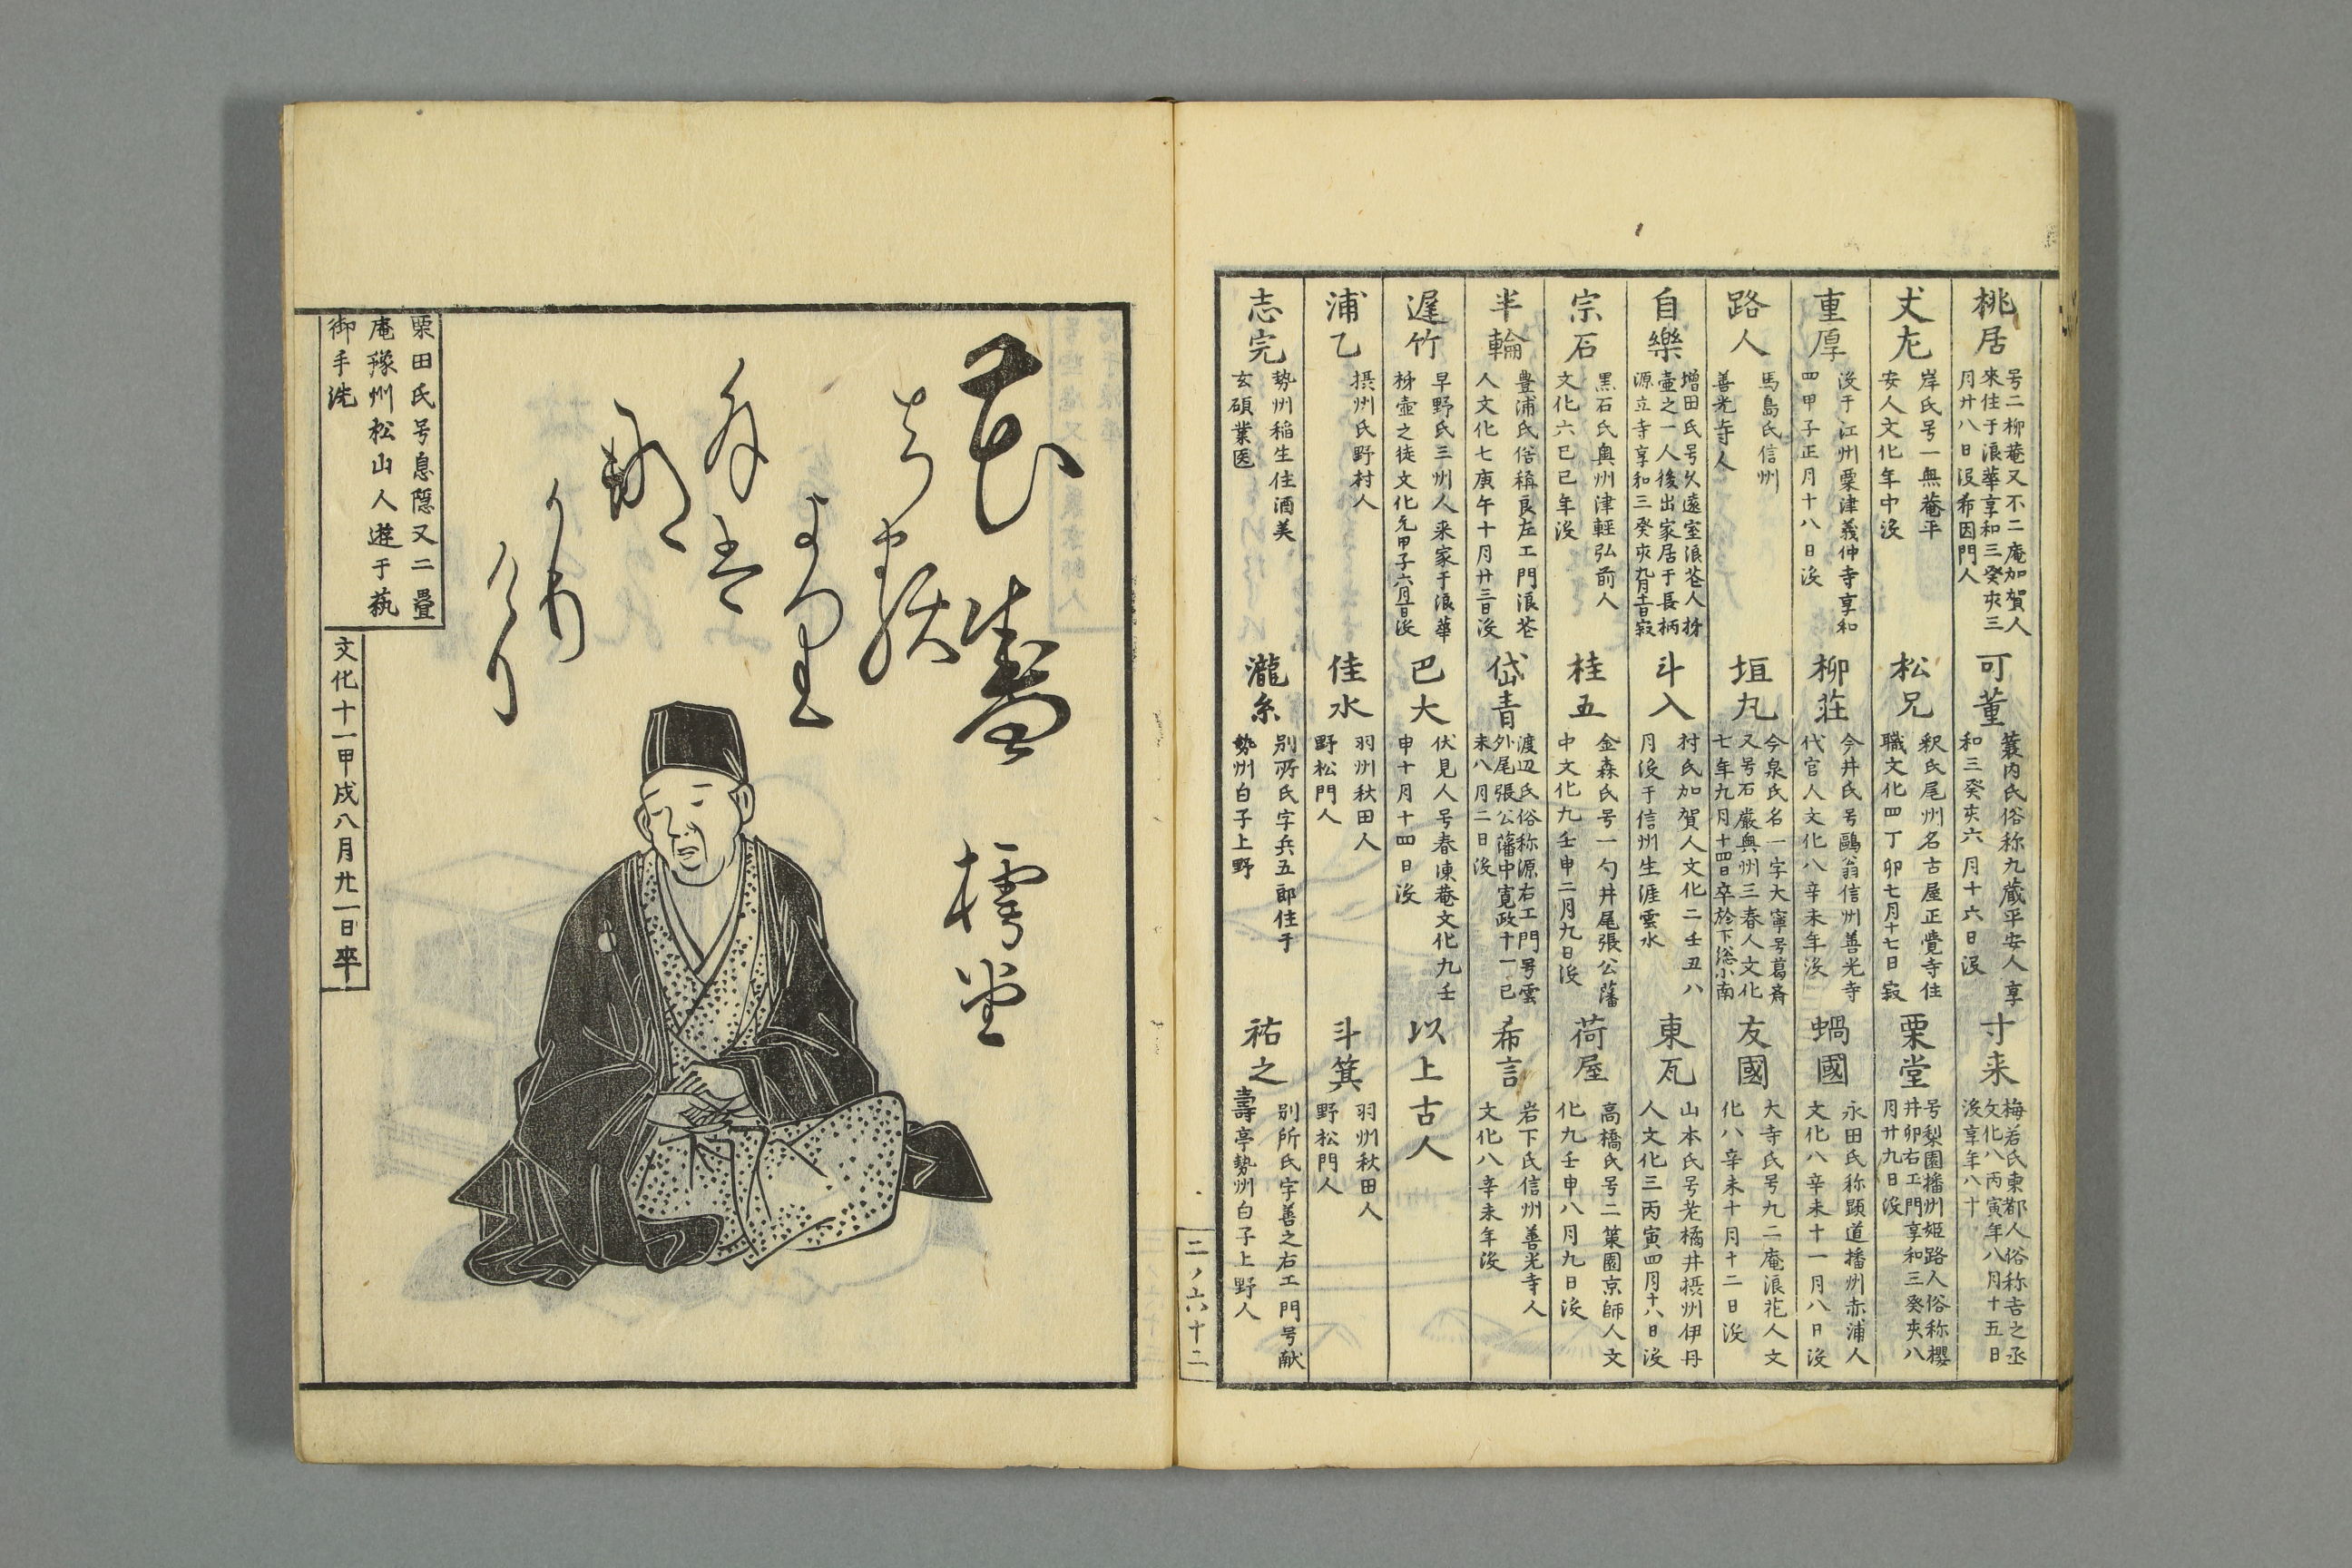 桃居
号二柳菴又不二庵加賀人
來住于浪華享和三癸亥三
月廾八日没希因門人
可董
蓑内氏俗称九蔵平安人享
和三癸亥六月十六日没
寸来
梅若氏東都人俗称吉之丞
文化八丙寅年八月十五日
没享年八十
丈左
岸氏号一無菴平
安人文化年中没
松兄
釈氏尾州名古屋正覺寺住
職文化四丁卯七月十七日寂
栗堂
号梨園播州姫路人俗称櫻
井卯右エ門享和三癸亥八
月廾九日没
重厚
没于江州粟津義仲寺享和
四甲子正月十八日没
柳荘
今井氏号鷗翁信州善光寺
代官人文化八辛未年没
蝸國
永田氏称顕道播州赤浦人
文化八辛未十一月八日没
路人
馬島氏信州
善光寺人
垣丸
今泉氏名一字大寧号葛斎
又号石巌奥州三春人文化
七年九月十四日卒於下総小南
友國
大寺氏号九二庵浪花人文
化八辛未十月十二日没
自樂
増田氏号久遠室浪苍人枡
壷之一人後出家居于長柄
源立寺享和三癸亥九月十一日寂
斗入
村氏加賀人文化二壬丑八
月没于信州生涯雲水
東瓦
山本氏号老橘井摂州伊丹
人文化三丙寅四月十八日没
宗石
黒石氏奥州津軽弘前人
文化六己巳年没
桂五
金森氏号一勺井尾張公藩
中文化九壬申二月九日没
荷屋
高橋氏号二菓園京師人文
化九壬申八月九日没
半輪
豊浦氏俗稱良左工門浪苍
人文化七庚午十月廾三日没
岱青
渡辺氏俗称源右工門号雲
外尾張公藩中寛政十一己
未八月二日没
希言
岩下氏信州善光寺人
文化八辛未年没
遅竹
早野氏三州人来家于浪華
枡壷之徒文化元甲子六月百没
巴大
伏見人号春凍菴文化九壬
申十月十四日没
以上古人
浦乙
摂州氏野村人
佳水
羽州秋田人
野松門人
斗箕
羽州秋田人
野松門人
志完
勢州稲生住酒美
玄碩業医
瀧糸
別所氏字兵五郎住于
勢州白子上野
祐之
別所氏字善之右工門号献
壽亭勢州白子上野人
二ノ六十二
花壽
樗堂
栗田氏号息隠又二疊
庵豫州松山人遊于萟
御手洗
文化十一甲戌八月廾一日卒